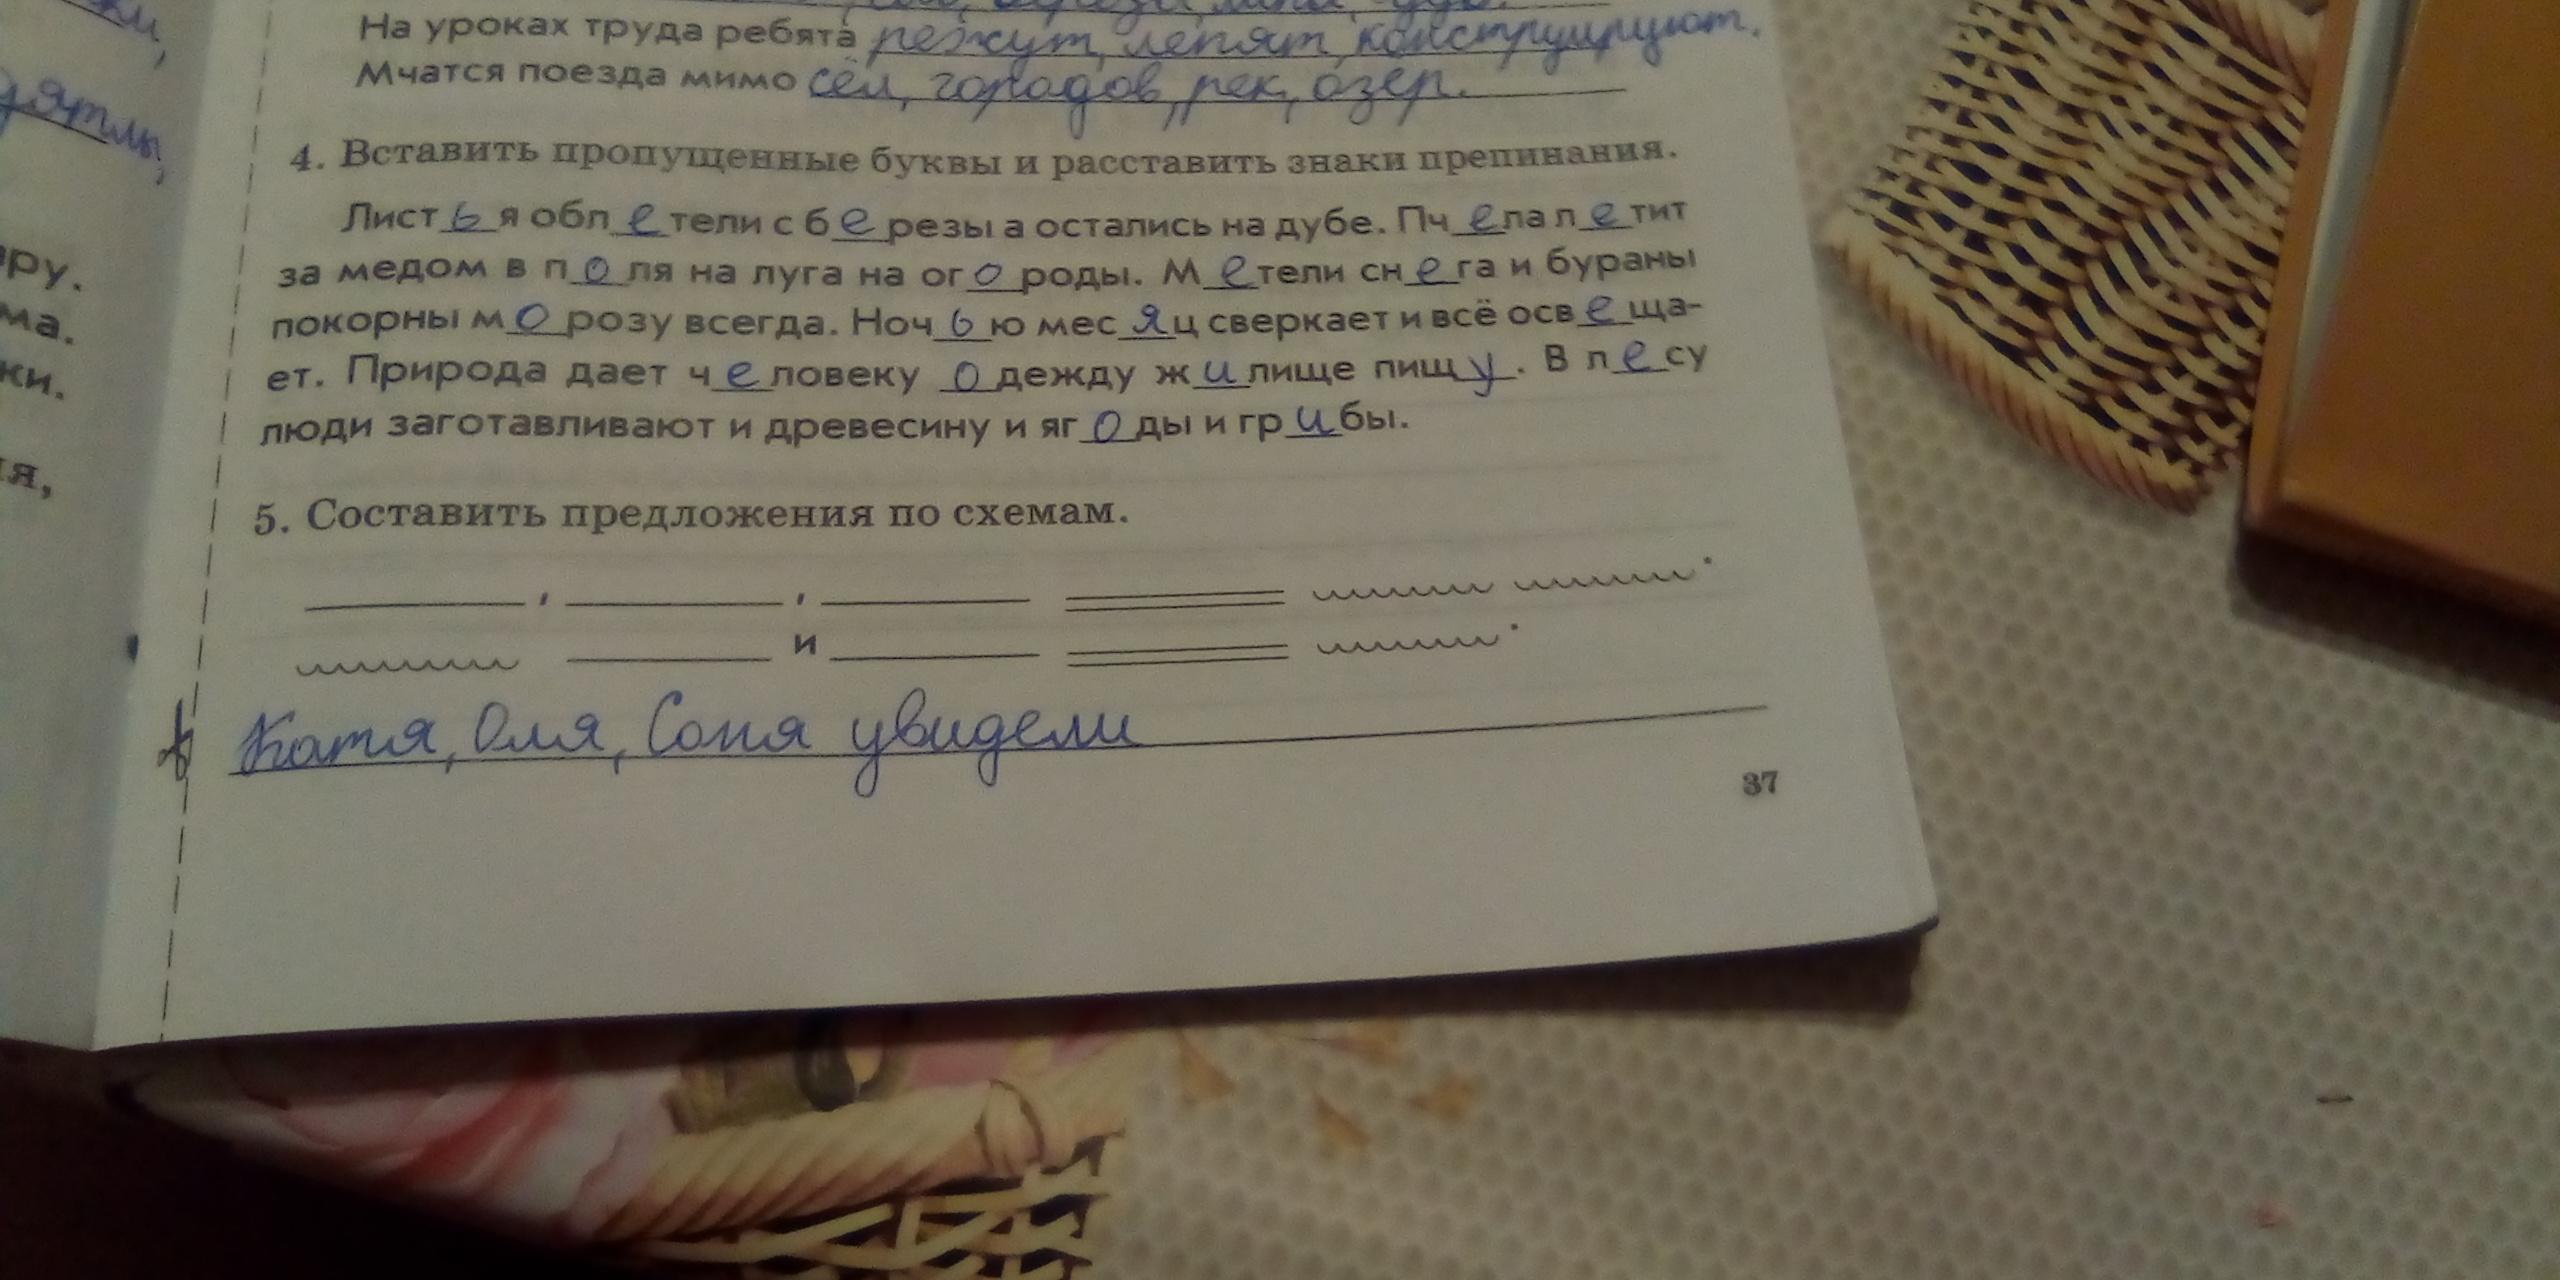 На уроках труда ребята режут, лепят, конструируют.
Мчатся поезда мимо сёл, городов, рек, озер.
4. Вставить пропущенные буквы и расставить знаки препинания.
Лист ь я обл е тели с б е резы а остались на дубе. Пч е ла л е тит
за медом в п о ля на луга на ог о роды. М е тели сн е га и бураны
покорны м о розу всегда. Ноч ь ю мес я ц сверкает и всё осв е ща-
ет. Природа дает ч е ловеку о дежду ж и лище пищ у . В л е су
люди заготавливают и древесину и яг о ды и гр и бы.
5. Составить предложения по схемам.
и
Катя, Оля, Соня увидели
37
ру.
ма.
ки.
я,